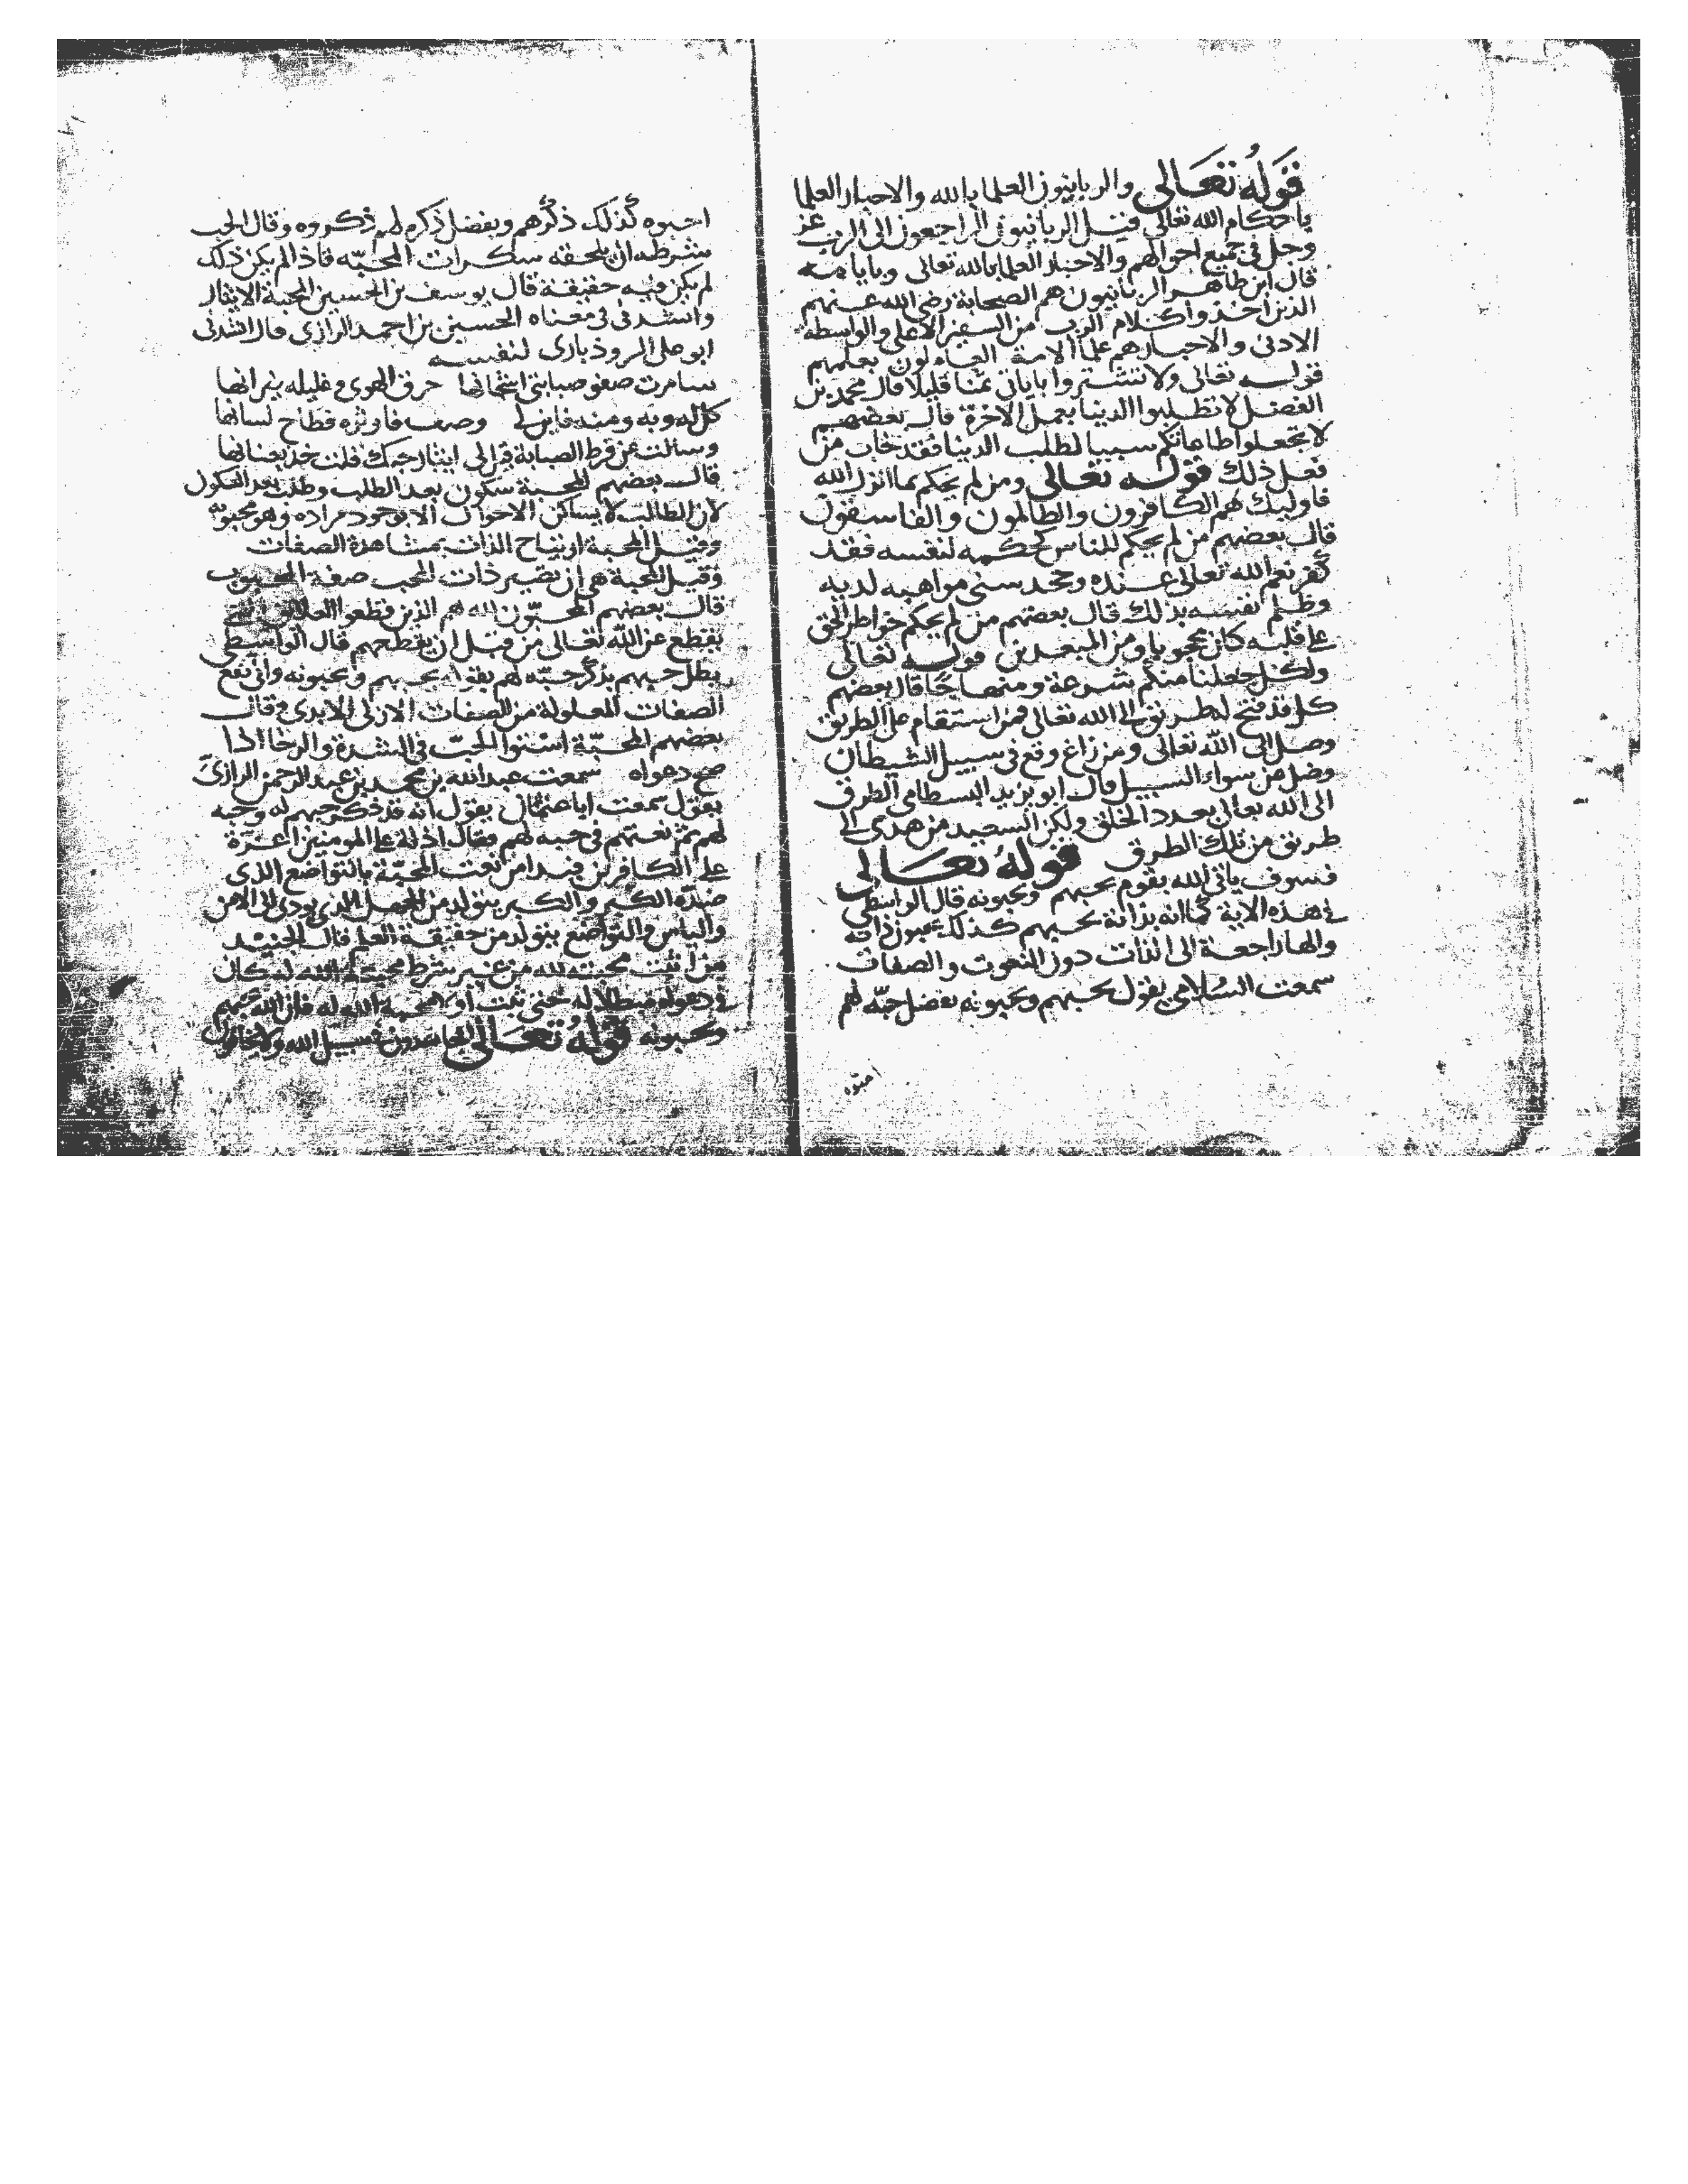 قوله تعالى والربانيون العلما بالله والاحبار العلما
باحكام الله تعالى وقيل الربانيون الراجعون الى الرب عز
وجل في جميع احوالهم والاحبار العلما بالله تعالى وباياته
قال ابن طاهر الربانيون هم الصحابة رضي الله عنهم
الذين اخذوا كلام الرب من السفير الاعلى والواسطة
الادنى والاحبار هم علما الامة العاملون بعلمهم
قوله تعالى ولا تشتروا باياتي ثمنا قليلا قال محمد بن
الفضل لا تطلبوا الدنيا بعمل الاخرة قال بعضهم
لا تجعلوا طاعاتكم سببا لطلب الدنيا فقد خاب من
فعل ذلك قوله تعالى ومن لم يحكم بما انزل الله
فاوليك هم الكافرون والظالمون والفاسقون
قال بعضهم من لم يحكم للناس كحكمه لنفسه فقد
كفر نعم الله تعالى عنده وجحد سنى مواهبه لديه
وظلم نفسه بذلك قال بعضهم من لم يحكم خواطر الحق
على قلبه كان محجوبا ومن المبعدين قوله تعالى
ولكل جعلنا منكم شرعة ومنهاجا قال بعضهم
كل قد فتح له طريق الى الله تعالى فمن استقام على الطريق
وصل الى الله تعالى ومن زاغ وقع في سبيل الشيطان
وضل عن سواء السبيل قال ابو يزيد البسطامي الطرق
الى الله تعالى بعدد الخلق ولكن السعيد من هدى الى
طريق من تلك الطرق قوله تعالى
فسوف ياتي الله بقوم يحبهم ويحبونه قال الواسطي
في هذه الاية كما انه بذاته يحبهم كذلك يحبون ذاته
والها راجعة الى الذات دون النعوت والصفات
سمعت السلامي يقول يحبهم ويحبونه بفضل حبه لهم
احبوه
احبوه كذلك ذكرهم وبفضل ذكره لهم ذكروه وقال الحب
شرطه ان يلحقه سكرات المحبه فاذا لم يكن ذلك
لم يكن فيه حقيقة قال يوسف بن الحسين المحبة الايثار
وانشدني في معناه الحسين بن احمد الرازي قال انشدني
ابو على الروذباري لنفسه
سامرت صفو صبابتي اشجانها حرق الهوى وغليله نيرانها
كل له وبه ومنه فاين لي وصف فاوثره فطاح لسانها
وسالت عن فرط الصبابة قيل لي ايثار حبك قلت خذ بعنانها
قال بعضهم المحبة سكون بعد الطلب وطلب بعد السكول
لان الطالب لا يساكن الاحوال الا بوجود مراده وهو محبوبه
وقيل المحبة ارتياح الذات بمشاهدة الصفات
وقيل المحبة هي ان تصير ذات المحب صفة المحبوب
قال بعضهم المحبون لله هم الذين قطعوا العلائق التي
يقطع عن الله تعالى من قبل ان يقطعهم قال الواسطي
بطل حبهم بذكر حبه لهم بقوله يحبهم ويحبونه وانى تقع
الصفات المعلولة من الصفات الازلي الابدي وقال
بعضهم المحبة استوا الحب في الشدة والرخا اذا
صح دعواه سمعت عبد الله بن محمد بن عبد الرحمن الرازي
يقول سمعت ابا عثمان يقول انه قد ذكر حبهم له وحبه
لهم ثم نعتهم في حبه لهم فقال اذلة على المومنين اعزة
على الكافرين فبدا من نعت المحبة بالتواضع الذي
ضده الكبر والكبر يتولد من الجهل الذي يودي الى الامن
والياس والتواضع يتولد من حقيقة العلم قال الجنيد
من اثبت محبته لله من غير شرط محبة الله له كان
في دعواه مبطلا له حتى يثبت اولا محبة الله له فان الله يحبهم
يحبونه قوله تعالى يجاهدون في سبيل الله ولا يخافون